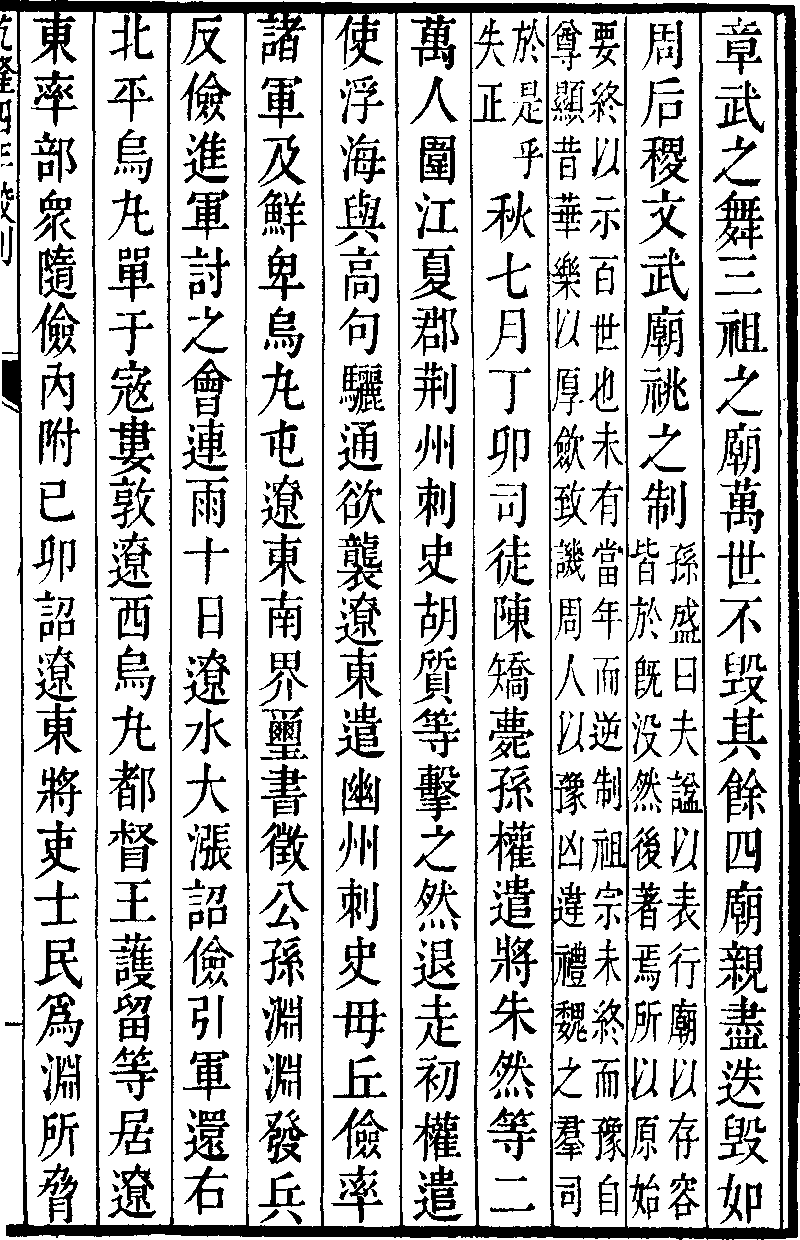 章武之舞三祖之廟萬世不毀其餘四廟親盡迭毀如
周后稷文武廟祧之制孫盛曰夫諡以表行廟以存容
皆於旣没然後著焉所以原始
要終以示百世也未有當年而逆制祖宗未終而豫自
尊顯昔華樂以厚歛致譏周人以豫凶違禮魏之羣司
於是乎
失正
秋七月丁卯司徒陳矯薨孫權遣將朱然等二
萬人圍江夏郡荆州刺史胡質等擊之然退走初權遣
使浮海與高句驪通欲襲遼東遣幽州刺史毋丘儉率
諸軍及鮮卑烏丸屯遼東南界璽書徵公孫淵淵發兵
反儉進軍討之會連雨十日遼水大漲詔儉引軍還右
北平烏丸單于寇婁敦遼西烏丸都督王護留等居遼
東率部衆隨儉內附已卯詔遼東將吏士民爲淵所脅
乾隆四年校刊